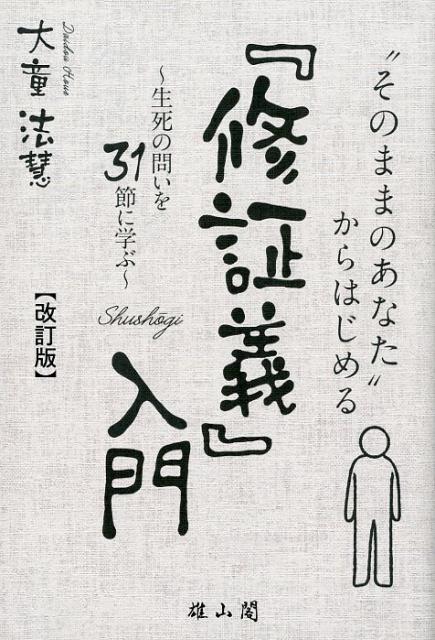 “そのままのあなた”
からはじめる
『修証義』
入門
Shushōgi
～生死の問いを
31節に学ぶ～
Daidou Houe
大童法慧
【改訂版】
雄山閣